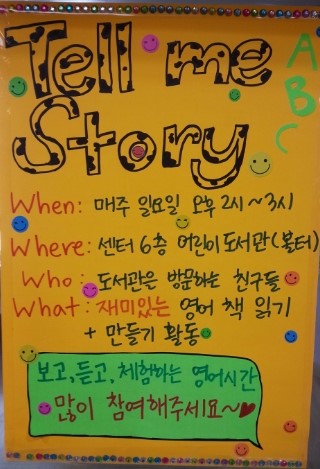 Tell me
Story
A
B
C
When: 매주 일요일 오후 2시~3시
Where: 센터 6층 어린이도서관(불터)
Who : 도서관은 방문하는 친구들
What: 재미있는 영어 책 읽기
+ 만들기 활동
보고, 듣고, 체험하는 영어시간
많이 참여해주세요~